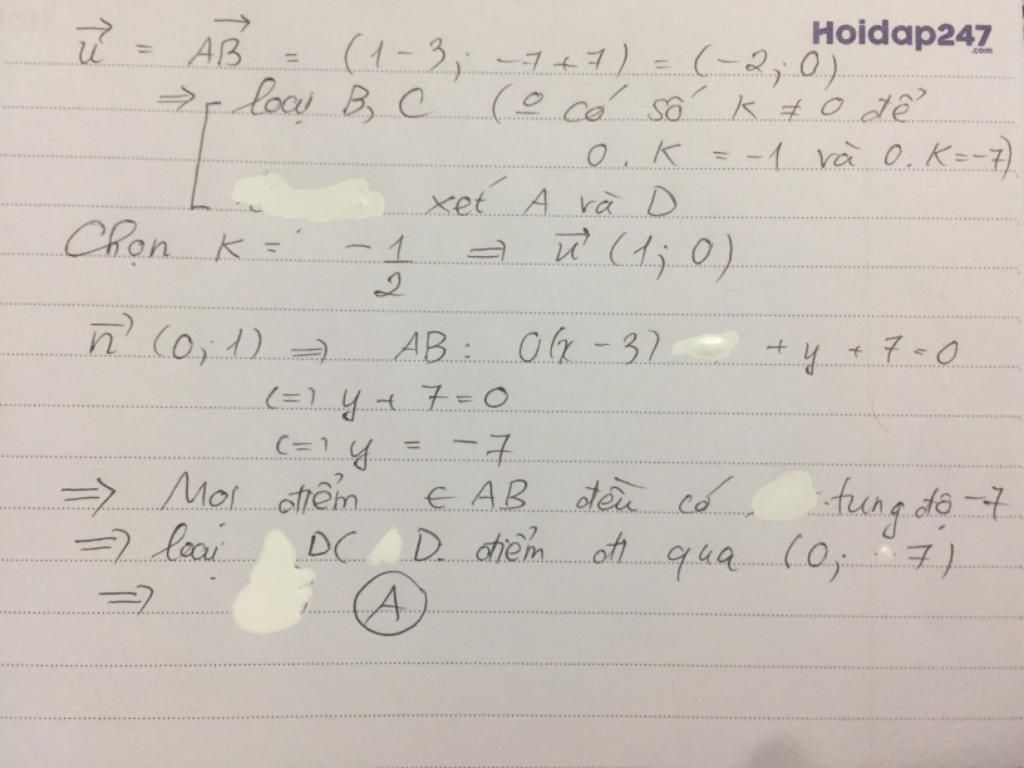 Hoidap247
.com
u⃗ = AB⃗ = (1-3; -7+7) = (-2; 0)
⇒ loại B, C (o có số K ≠ 0 để
0. K = -1 và 0. K = -7)
xét A và D
Chọn K = -1/2 ⇒ u⃗ (1; 0)
n⃗ (0; 1) ⇒ AB: 0(x - 3) + y + 7 = 0
(=) y + 7 = 0
(=) y = -7
⇒ Mọi điểm ∈ AB đều có tung độ -7
⇒ loại D( D. điểm đi qua (0; 7)
⇒ A